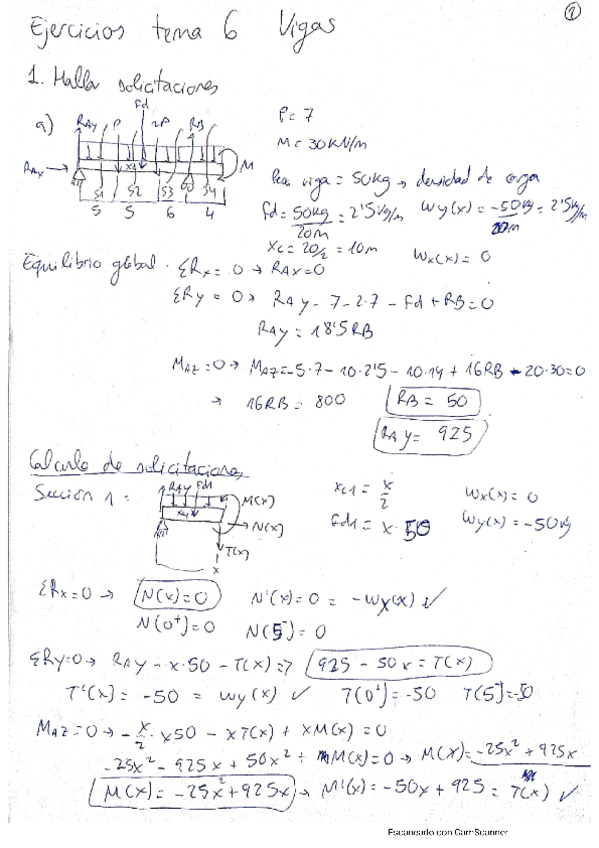 ②
Ejercicios tema 6 Vigas
1. Hallar solicitaciones
a)
Fd
RAy P 2P RB
RAx M
S1 S2 S3 S4
5 5 6 4
P = 7
M = 30KN/m
Peso viga = 50kg → densidad de carga
Fd = 50kg/20m = 2'5kg/m wy(x) = -50kg/20m = 2'5kg/m
xc = 20/2 = 10m wx(x) = 0
Equilibrio global · ΣRx = 0 → RAx=0
ΣRy = 0 → RAy - 7 - 2·7 - Fd + RB = 0
RAy = 18'5RB
MAZ = 0 → MAZ = -5·7 - 10·2'5 - 10·14 + 16RB - 20·30 = 0
→ 16RB = 800 RB = 50
RAy = 925
Calculo de solicitaciones
Sección 1:
RAy Fd1 M(x)
N(x)
T(x)
x
xc1 = x/2 wx(x) = 0
Fd1 = x · 50 wy(x) = -50kg
ΣRx=0 → N(x)=0 N'(x) = 0 = -wx(x) ✓
N(0⁺)=0 N(5⁻) = 0
ΣRy=0 → RAy - x·50 - T(x) = 7 925 - 50x = T(x)
T'(x) = -50 = wy(x) ✓ T(0⁺) = -50 T(5⁻) = -50
MAZ = 0 → -x/2 · x50 - xT(x) + xM(x) = 0
-25x² - 925x + 50x² + M(x) = 0 → M(x) = -25x² + 925x
M(x) = -25x² + 925x → M'(x) = -50x + 925 = T(x) ✓
Escaneado con CamScanner